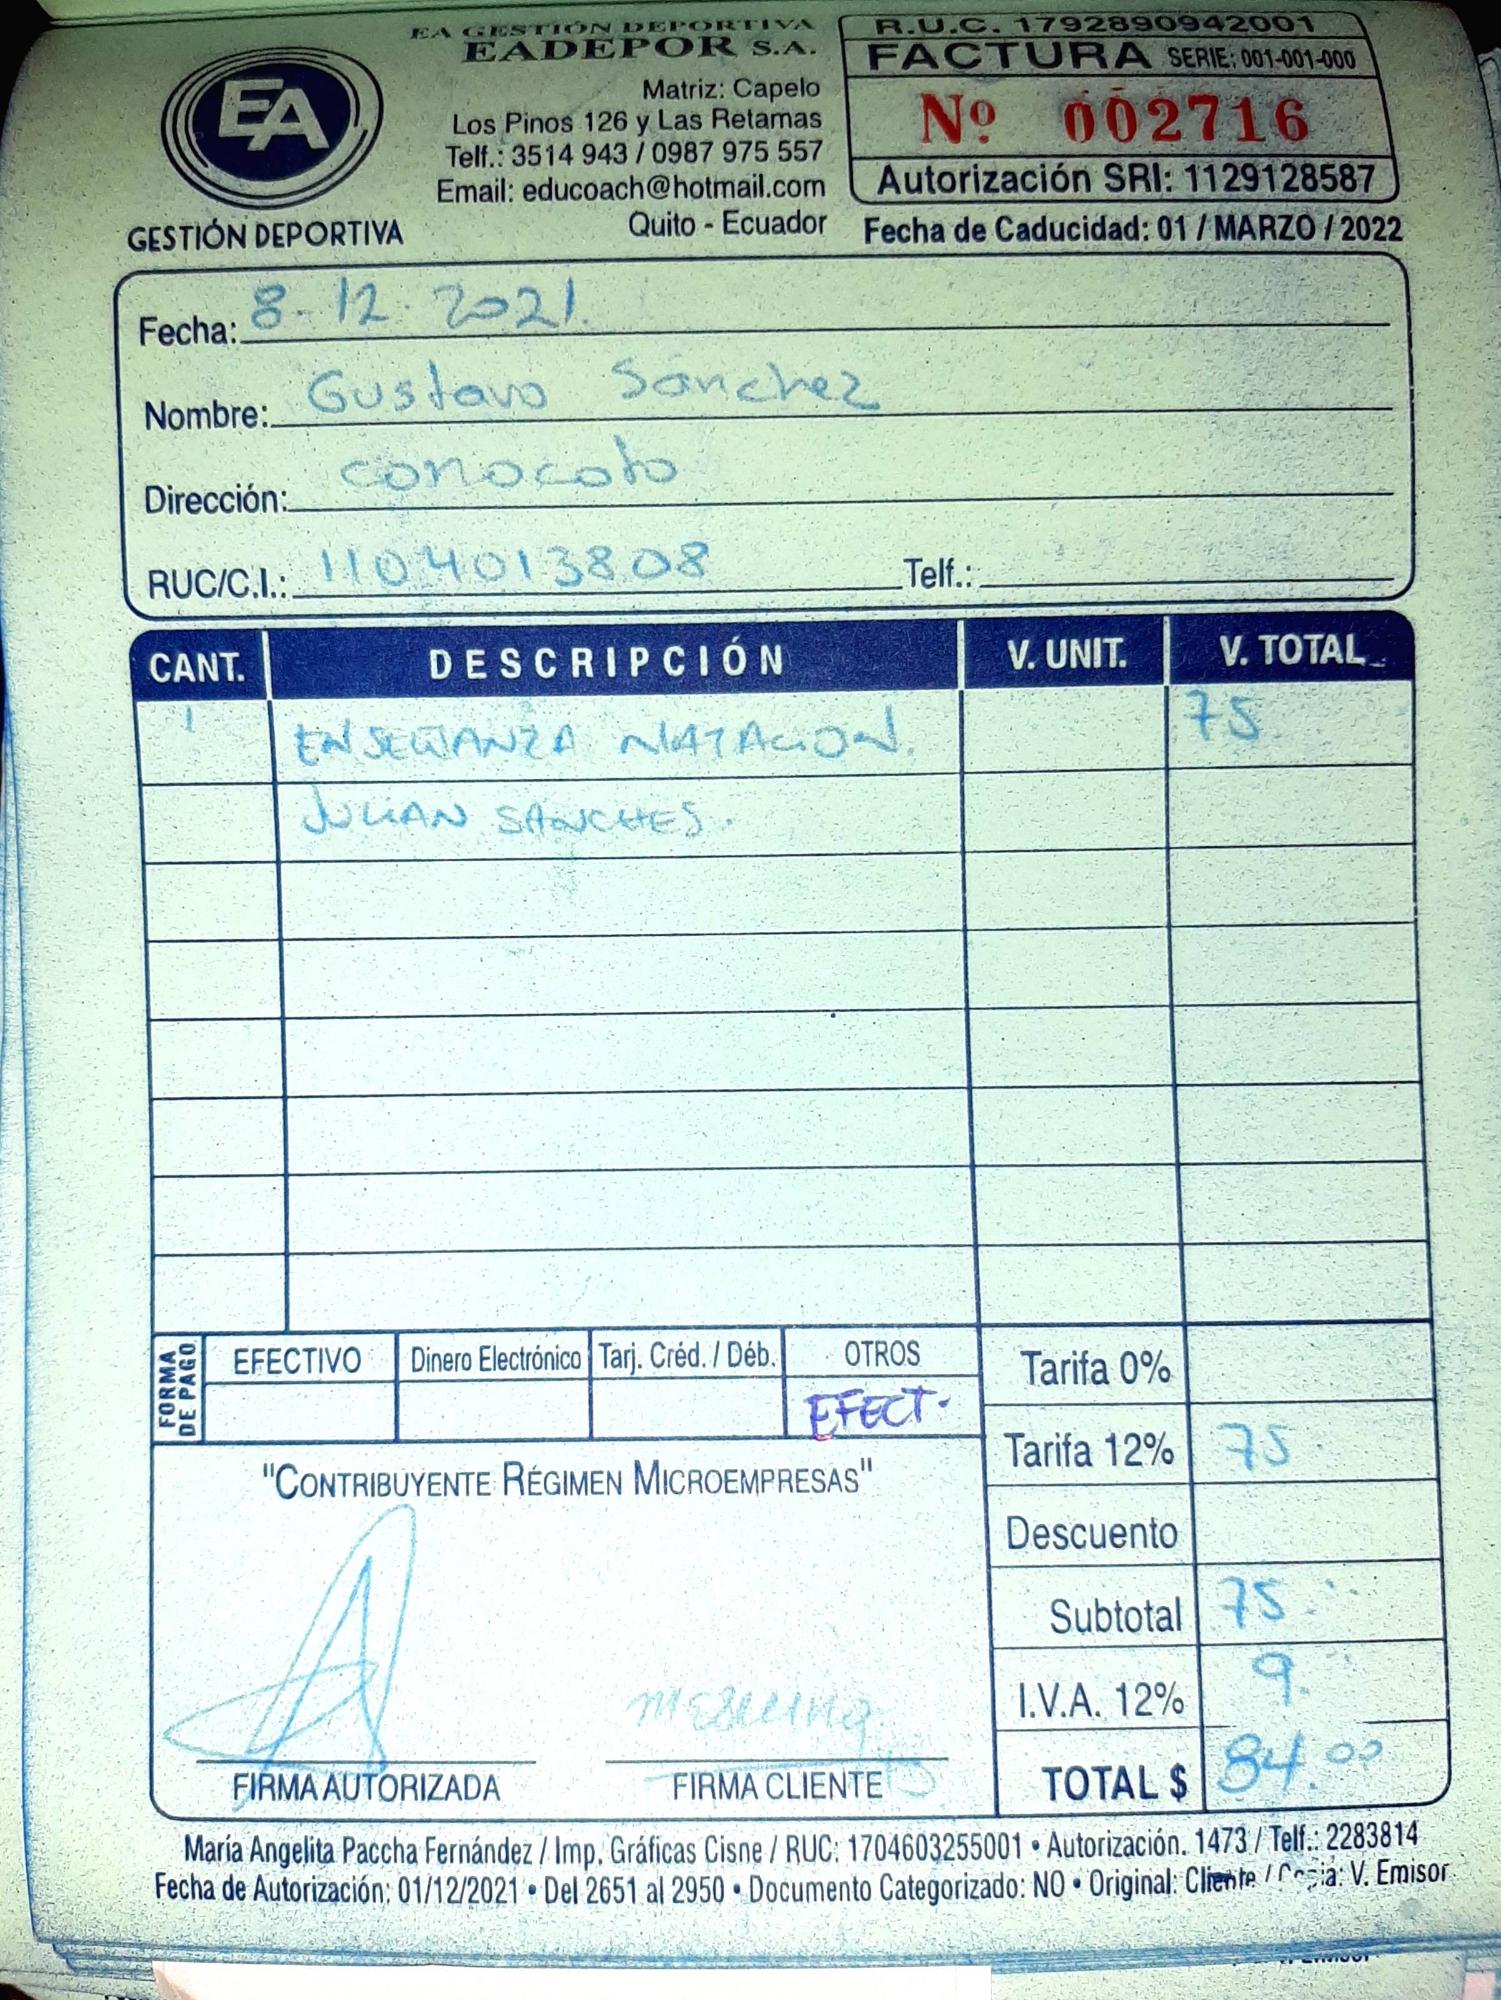 EA GESTIÓN DEPORTIVA
EADEPOR S.A.
Matriz: Capelo
Los Pinos 126 y Las Retamas
Telf.: 3514 943 / 0987 975 557
Email: educoach@hotmail.com
Quito - Ecuador
EA
GESTIÓN DEPORTIVA
R.U.C. 1792890942001
FACTURA SERIE: 001-001-000
Nº 002716
Autorización SRI: 1129128587
Fecha de Caducidad: 01 / MARZO / 2022
Fecha: 8-12-2021.
Nombre: Gustavo Sánchez
Dirección: conocoto
RUC/C.I.: 1104013808 Telf.:
CANT. DESCRIPCIÓN V. UNIT. V. TOTAL
1 ENSEÑANZA NATACION. 75
JULIAN SANCHES.
FORMA DE PAGO
EFECTIVO Dinero Electrónico Tarj. Créd. / Déb. OTROS
EFECT.
Tarifa 0%
Tarifa 12% 75
Descuento
Subtotal 75
I.V.A. 12% 9.
TOTAL $ 84.00
"CONTRIBUYENTE RÉGIMEN MICROEMPRESAS"
FIRMA AUTORIZADA FIRMA CLIENTE
María Angelita Paccha Fernández / Imp. Gráficas Cisne / RUC: 1704603255001 • Autorización. 1473 / Telf.: 2283814
Fecha de Autorización: 01/12/2021 • Del 2651 al 2950 • Documento Categorizado: NO • Original: Cliente / Copia: V. Emisor